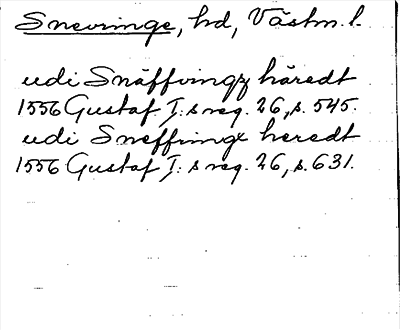 Snevringe, hd, Västm. l.
udi Snäffringz häredt
1556 Gustaf I:s reg. 26, s. 545.
udi Sneffringe heredt
1556 Gustaf I:s reg. 26, s. 631.